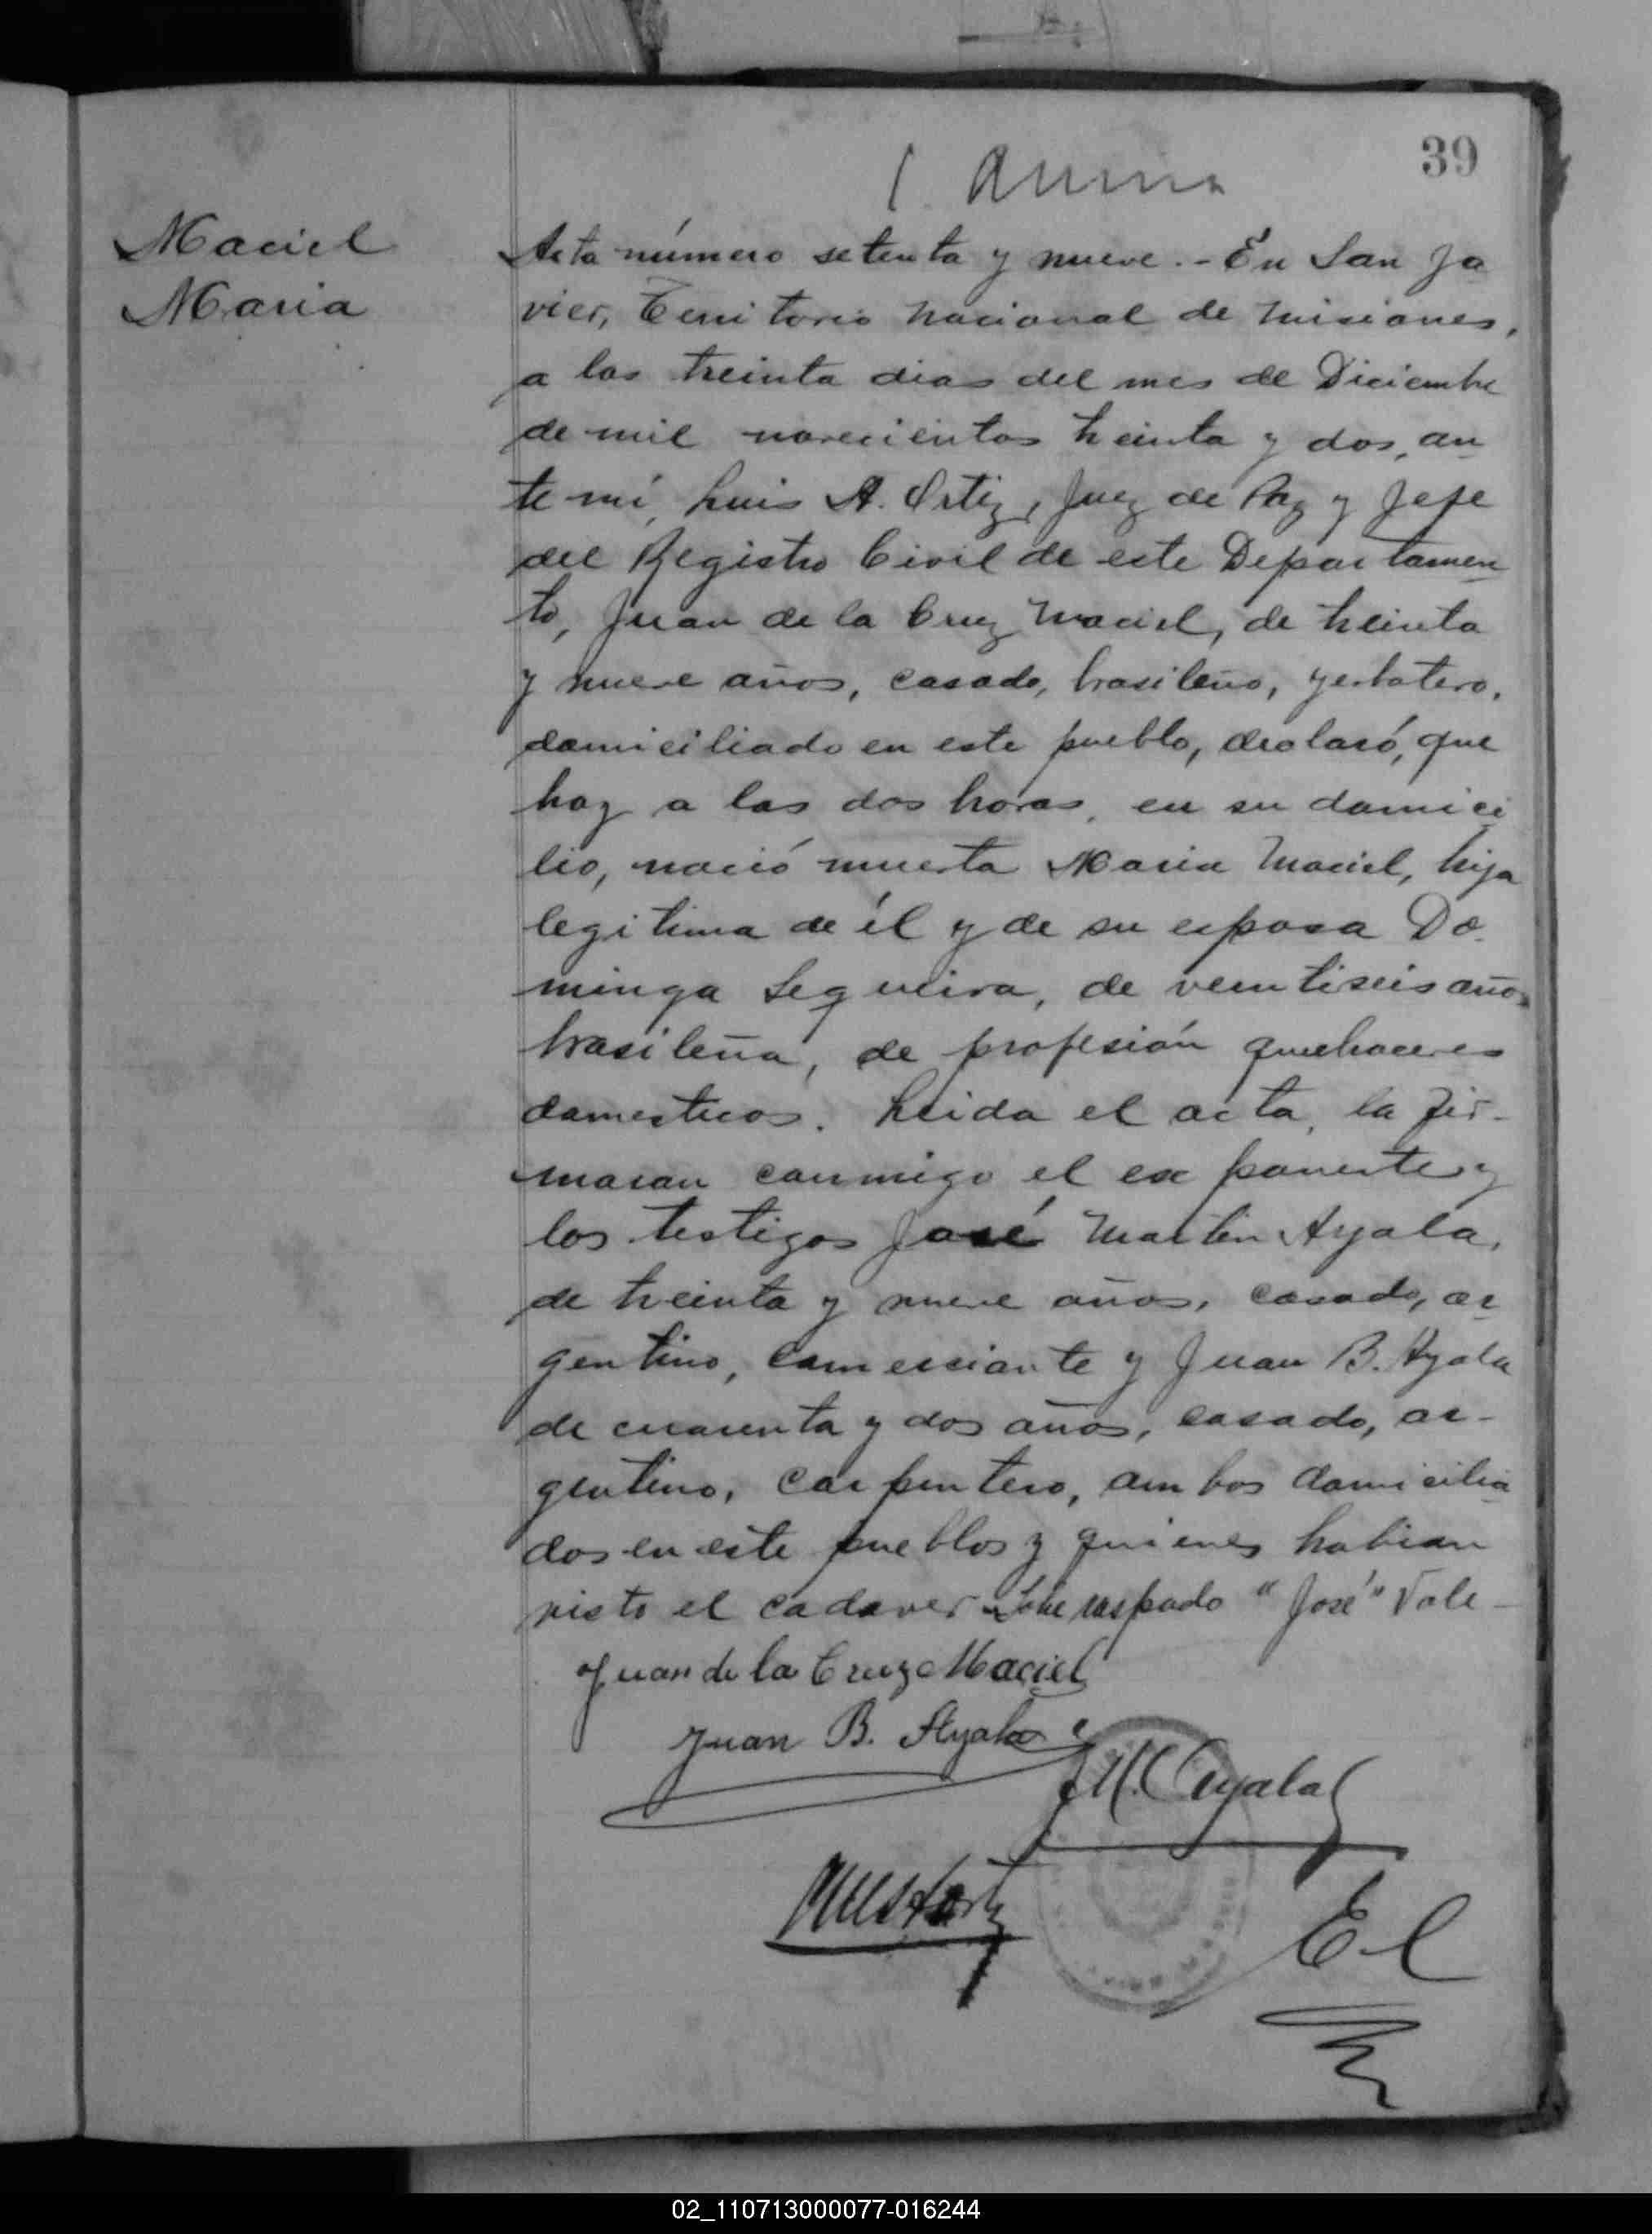 39
Maciel
Maria
Acta número setenta y nueve.- En San Ja
vier, Territorio Nacional de Misiones,
a los treinta dias del mes de Diciembre
de mil novecientos treinta y dos, an
te mí, Luis A. Ortiz, Juez de Paz y Jefe
del Registro Civil de este Departamen
to, Juan de la Cruz Maciel, de treinta
y nueve años, casado, brasileño, yerbatero,
domiciliado en este pueblo, declaró, que
hoy a las dos horas, en su domici
lio, nació muerta Maria Maciel, hija
legitima de él y de su esposa Do
minga Segueira, de veintiseis años
brasileña, de profesión quehaceres
domesticos. Leida el acta, la fir-
maran conmigo el exponente y
los testigos José Martin Ayala,
de treinta y nueve años, casado, ar
gentino, comerciante y Juan B. Ayala
de cuarenta y dos años, casado, ar-
gentino, carpintero, ambos domicilia
dos en este pueblos y quienes habian
visto el cadaver - Sobe raspado "José" Vale -
Juan de la Cruz Maciel
Juan B. Ayala
J M. Ayala
El
02_110713000077-016244